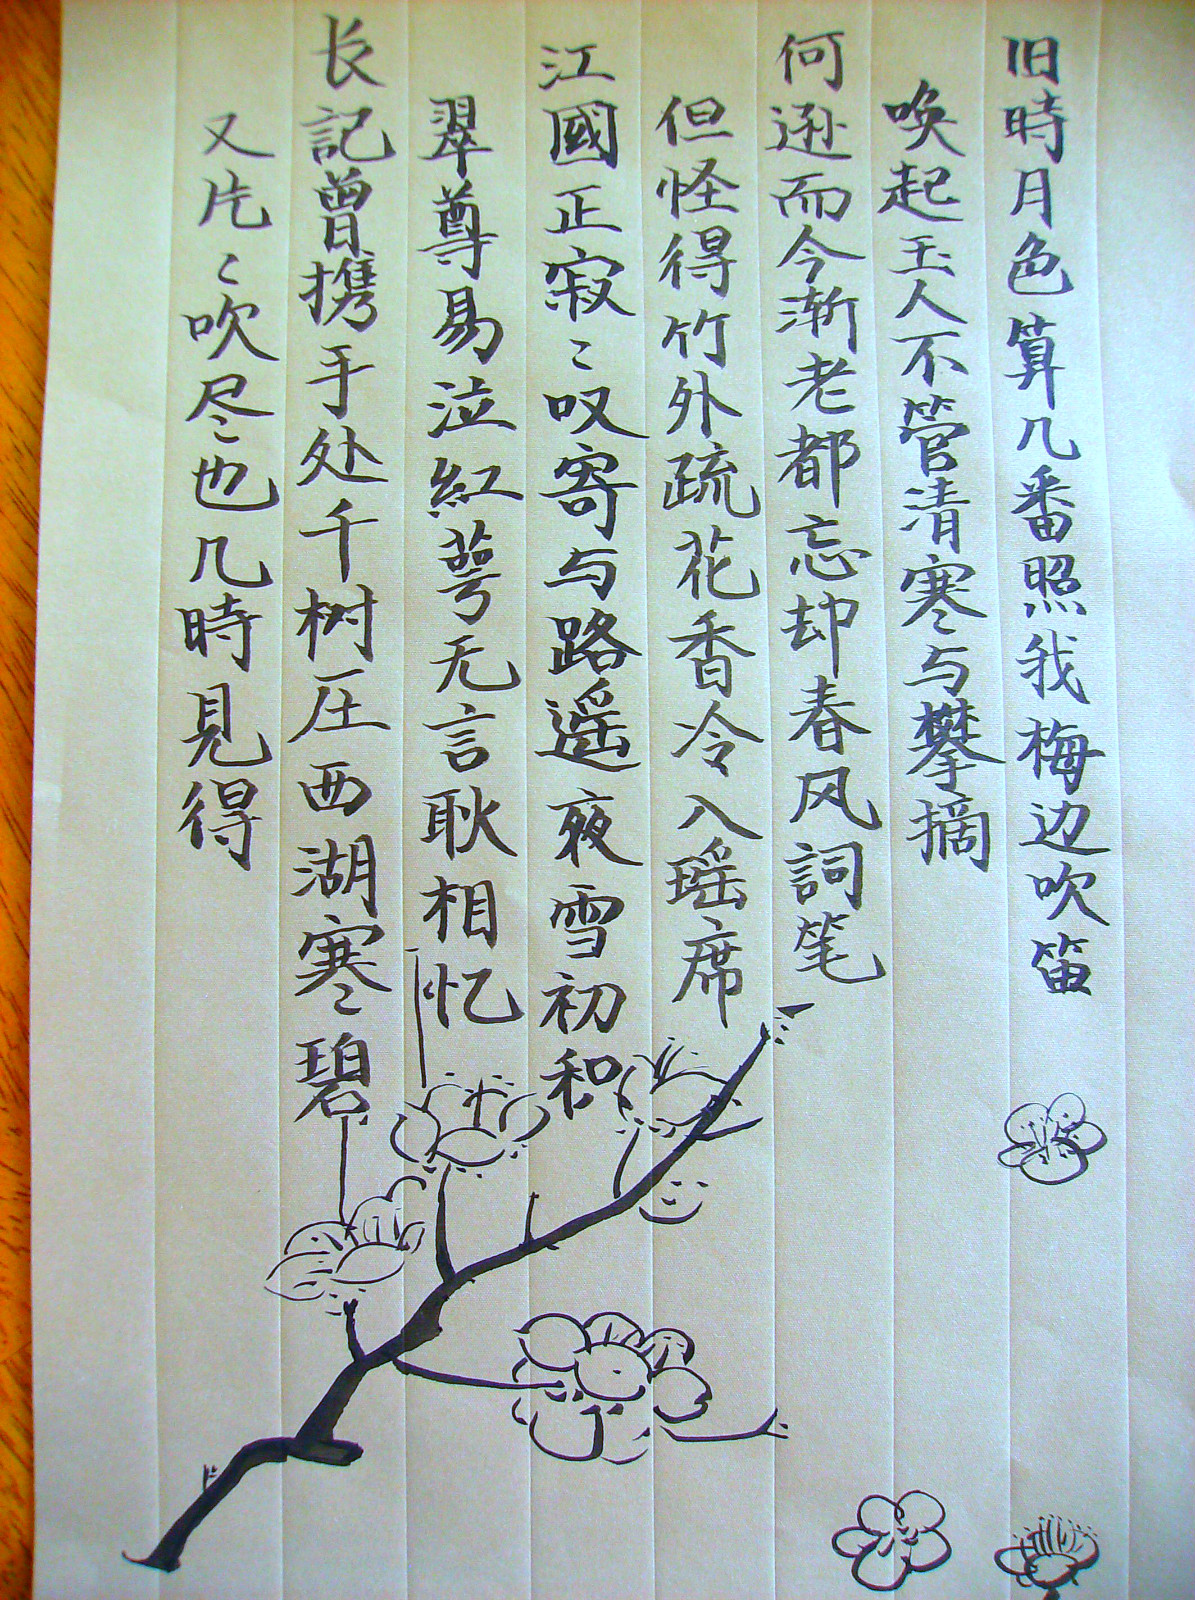 旧時月色算几番照我梅边吹笛
唤起玉人不管清寒与攀摘
何逊而今渐老都忘却春风詞笔
但怪得竹外疏花香冷入瑶席
江國正寂〻叹寄与路遥夜雪初和
翠尊易泣紅萼无言耿相忆
长記曾携手处千树压西湖寒〻碧
又片〻吹尽也几時見得